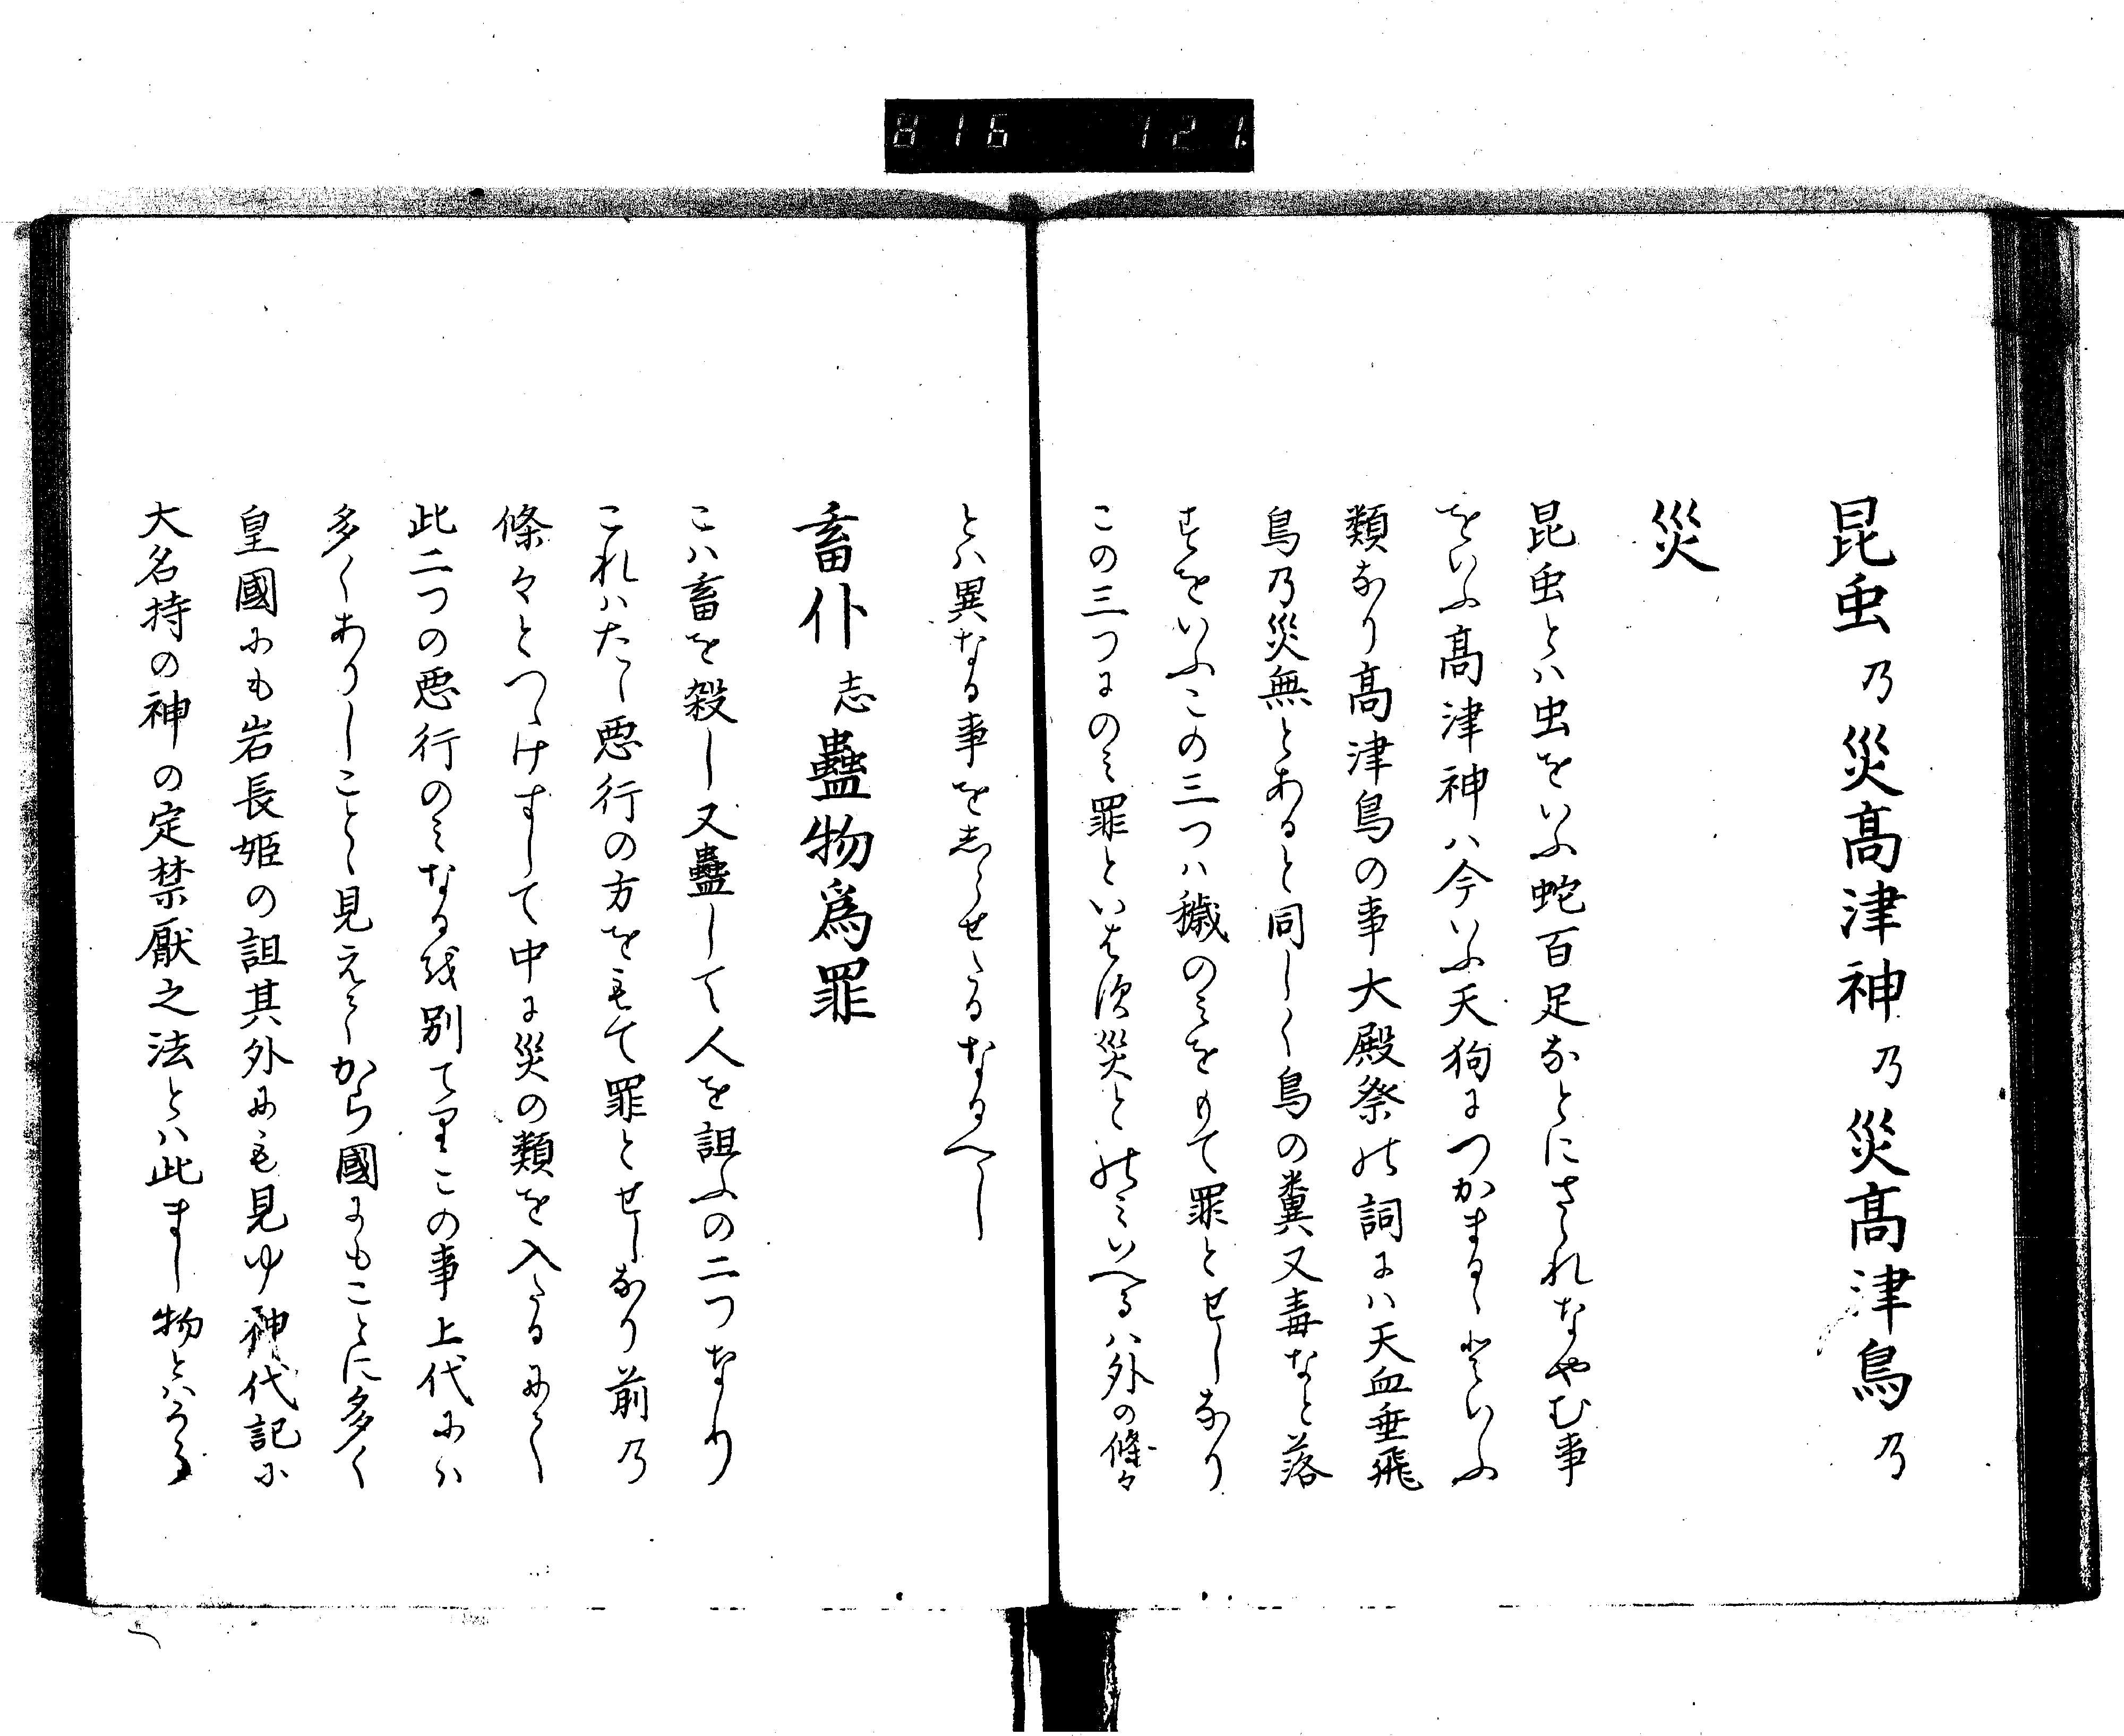 816 121.
昆虫乃災高津神乃災高津鳥乃
災
昆虫とハ虫をいふ蛇百足なとにさゝれなやむ事
をいふ高津神ハ今いふ天狗につかまるゝといふ
類なり高津鳥の事大殿祭の詞にハ天血垂飛
鳥乃災無とあると同しく鳥の糞又毒なと落
すをいふこの三つハ穢のミをもて罪とせしなり
この三つにのミ罪といはす災とのミいへるハ外の條々
とハ異なる事をしらせたるなるへし
畜仆志蠱物為罪
こハ畜を殺し又蠱して人を詛ふの二つなり
これハたゝ悪行の方をもて罪とせしなり前乃
條々とつゝけすして中に災の類を入たるにて
此二つの悪行のミなるは別てりこの事上代にハ
多くありしことゝ見えてから國にもことに多く
皇國にも岩長姫の詛其外にも見ゆ神代記に
大名持の神の定禁厭之法とハ此まし物とハうら